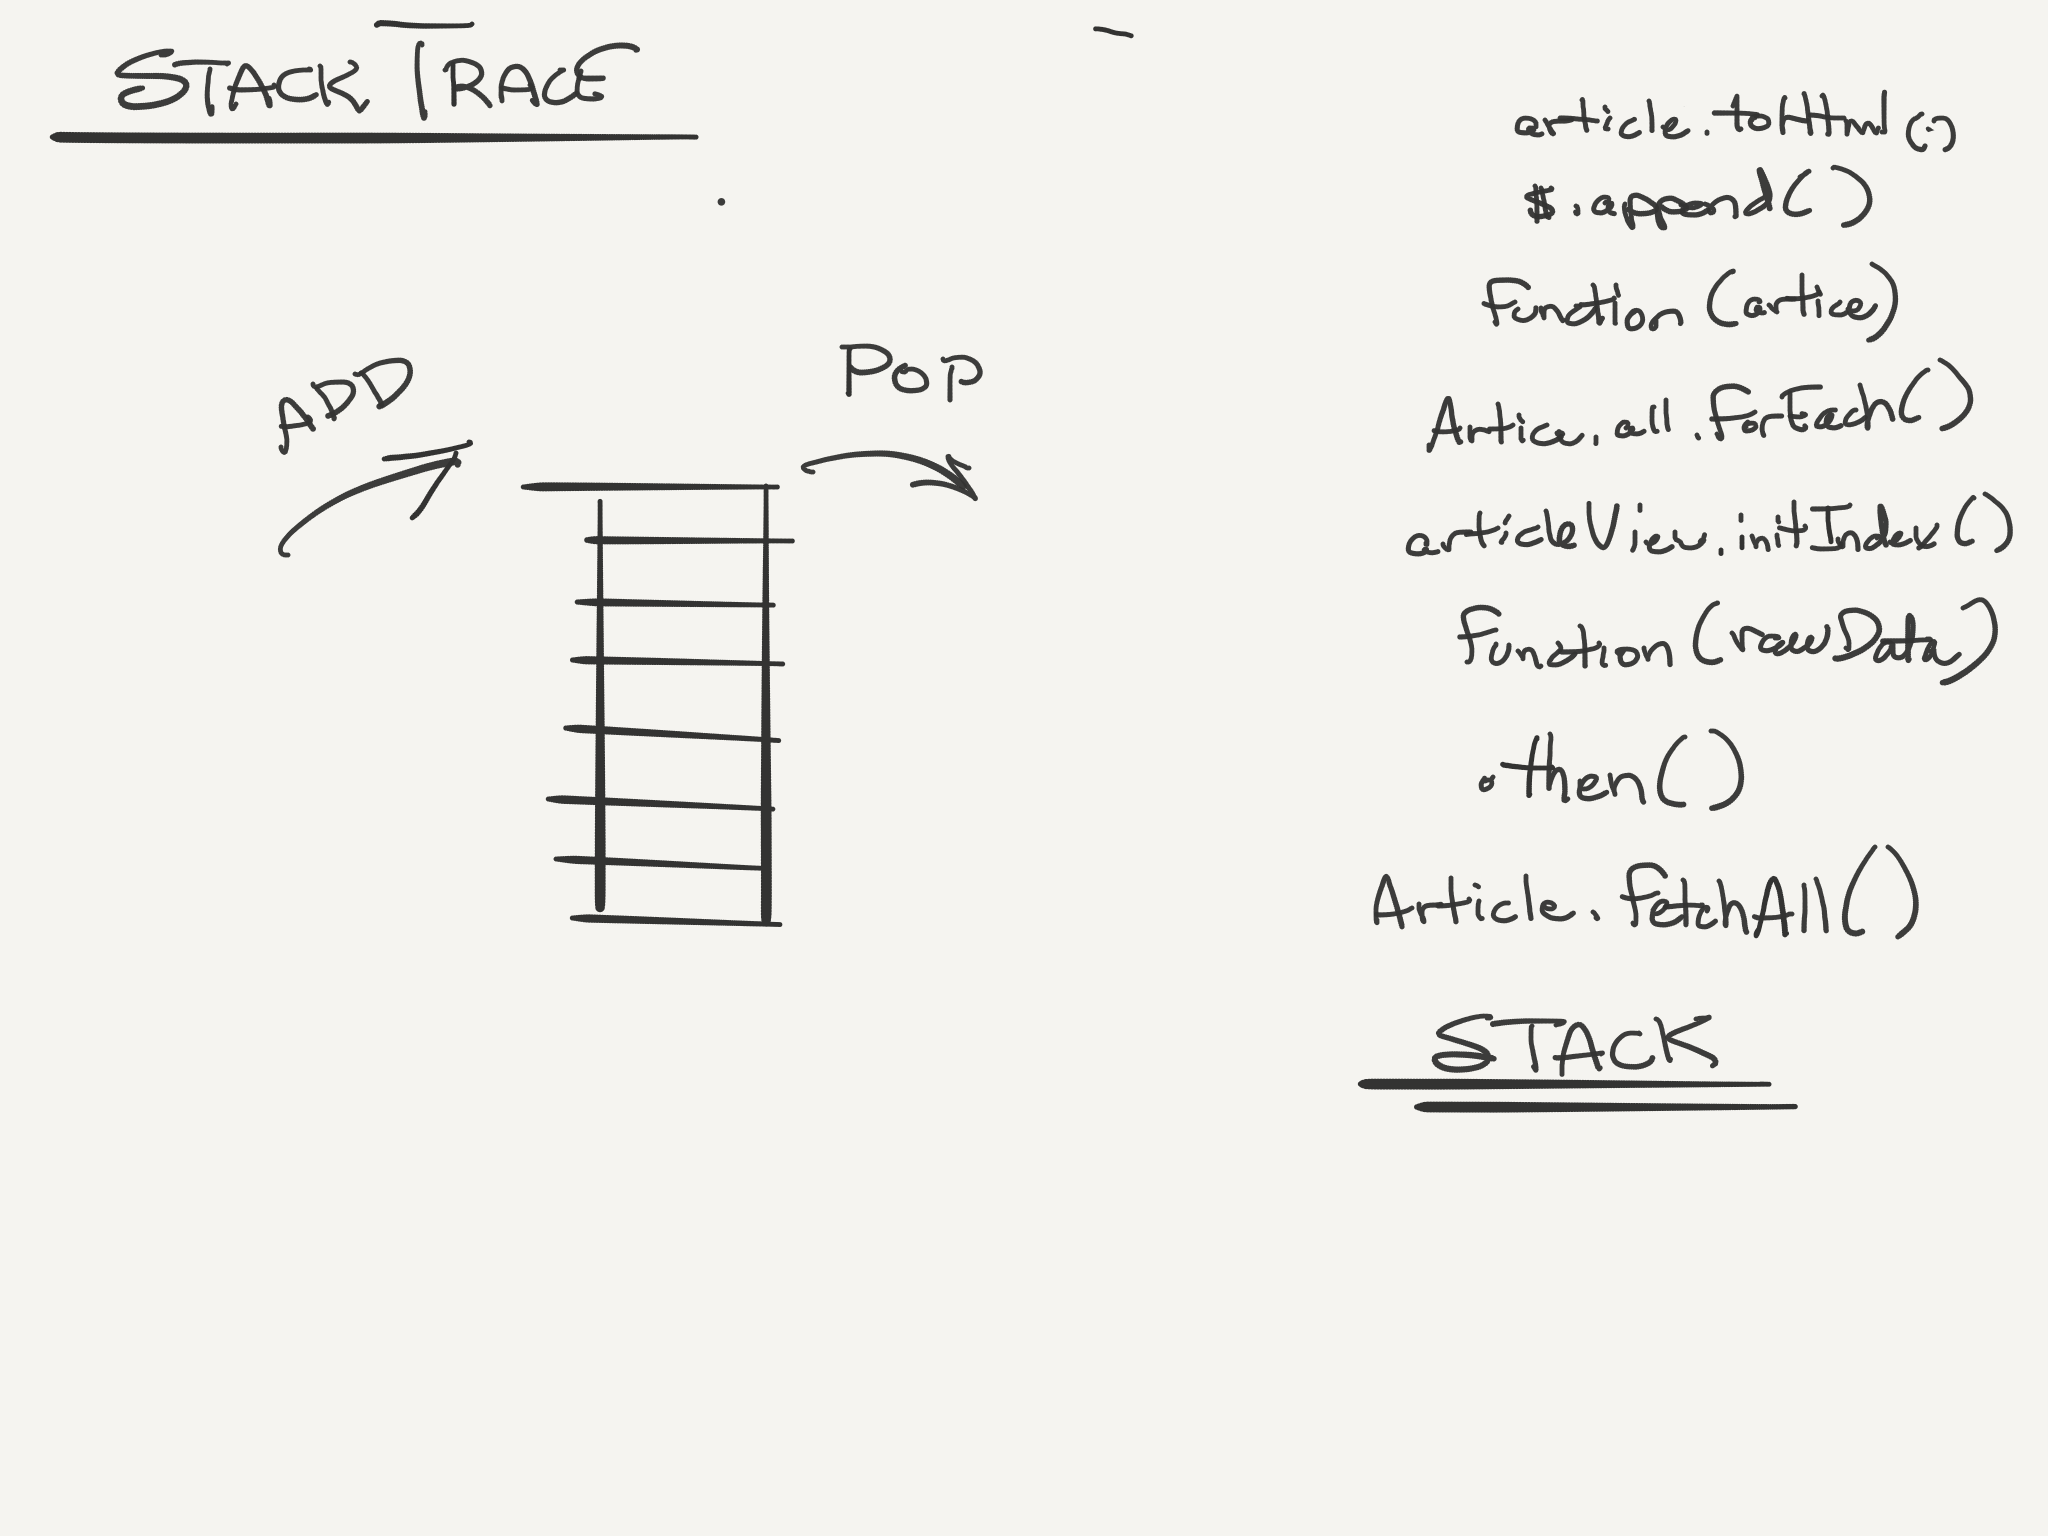 STACK TRACE
ADD
POP
article.toHtml()
$.append()
function (artice)
Artice.all.forEach()
articleView.initIndex()
function (rawData)
.then()
Article.fetchAll()
STACK